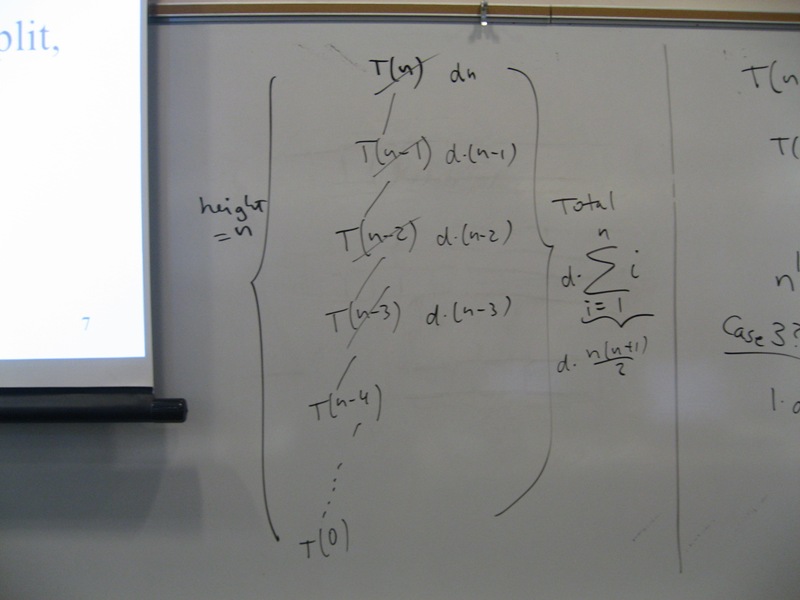 plit,
7
T(n) dn
T(n-1) d·(n-1)
T(n-2) d·(n-2)
T(n-3) d·(n-3)
T(n-4)
T(0)
height
= n
Total
n
d· ∑ i
i = 1
d· n(n+1)
2
T(n
T(
n
Case 3?
1·